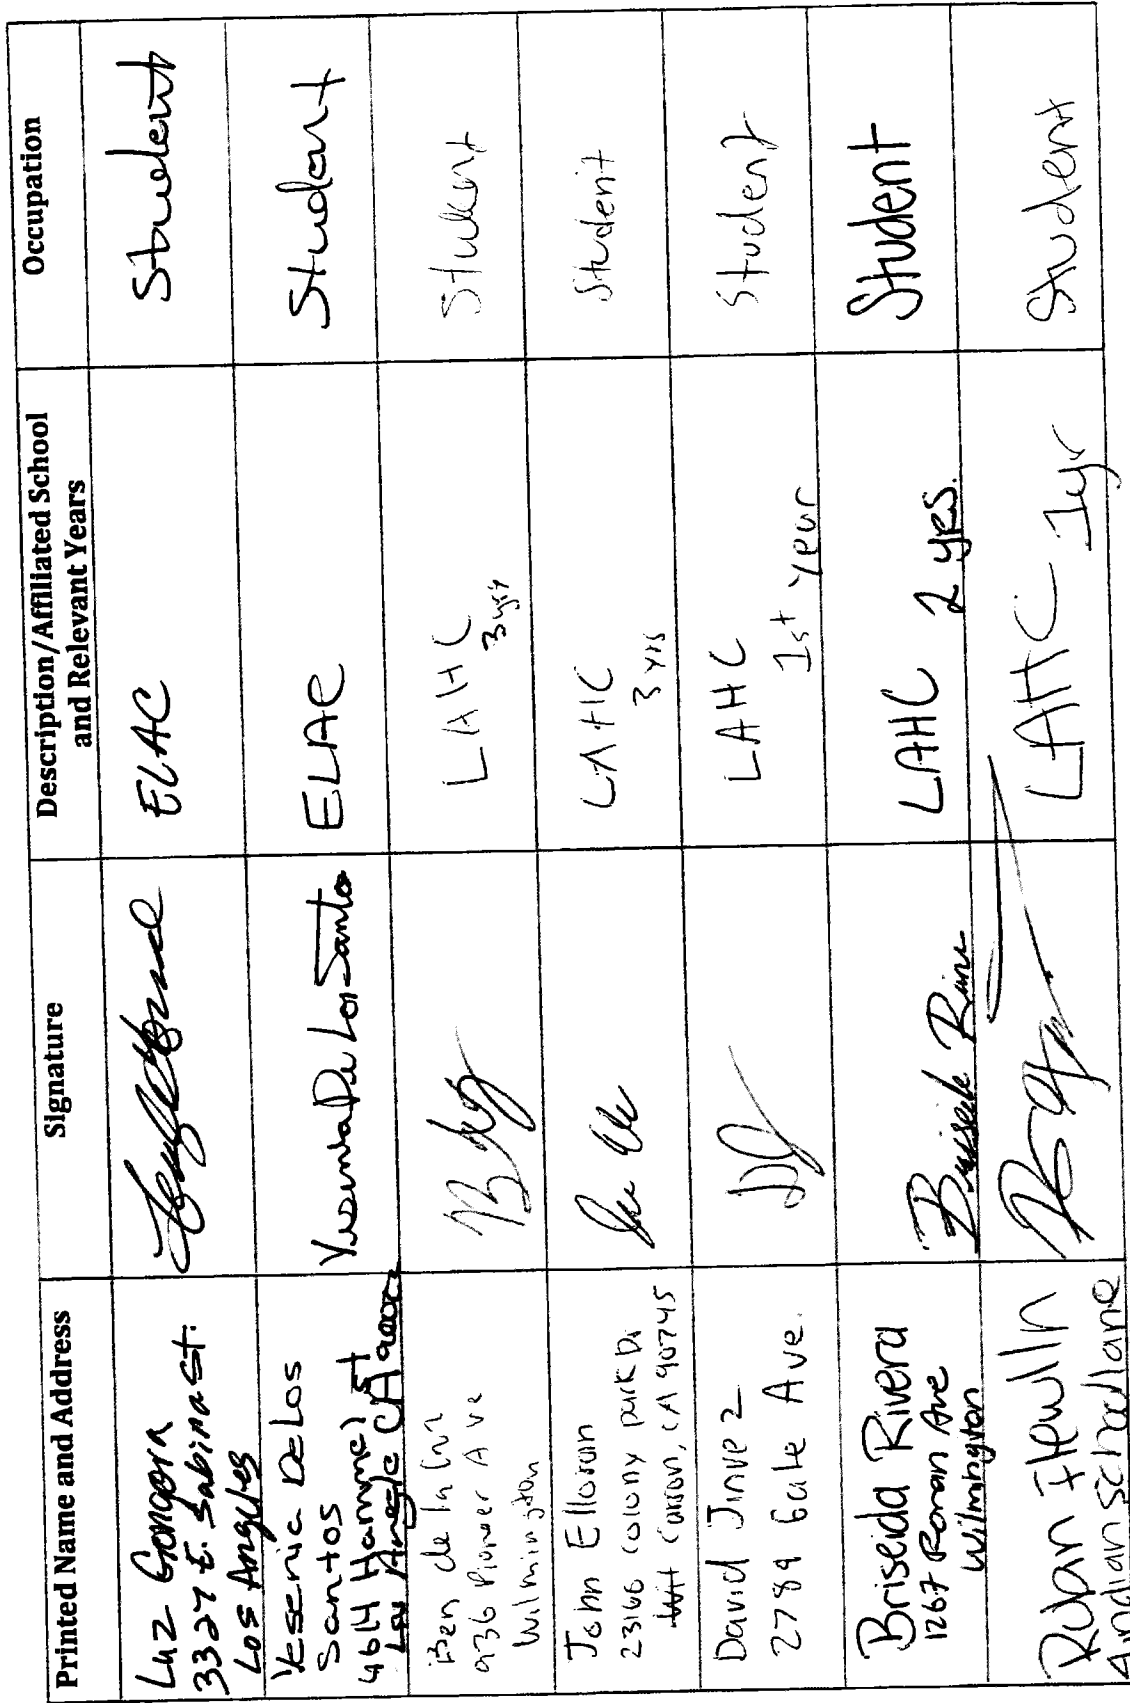 Printed Name and Address
Signature
Description/Affiliated School
and Relevant Years
Occupation
Luz Gongora
3327 E. Sabina St.
Los Angeles
ELAC
Student
Yesenia De Los
Santos
4614 Hammel St
Los Angele CA
Yesenia De Los Santo
ELAC
Student
Ben de la Cruz
936 Pioneer Ave
Wilmington
LAHC
3 yrs
Student
John Elloran
23166 colony park Dr
Carson, CA 90745
LAHC
3 yrs
Student
David Jinvez
2789 Gale Ave.
LAHC
1st year
Student
Briseida Rivera
1267 Ronan Ave
Wilmington
LAHC 2 yrs.
Student
Ryan Hewlln
Andianschoollane
LAHC 1yr
Student